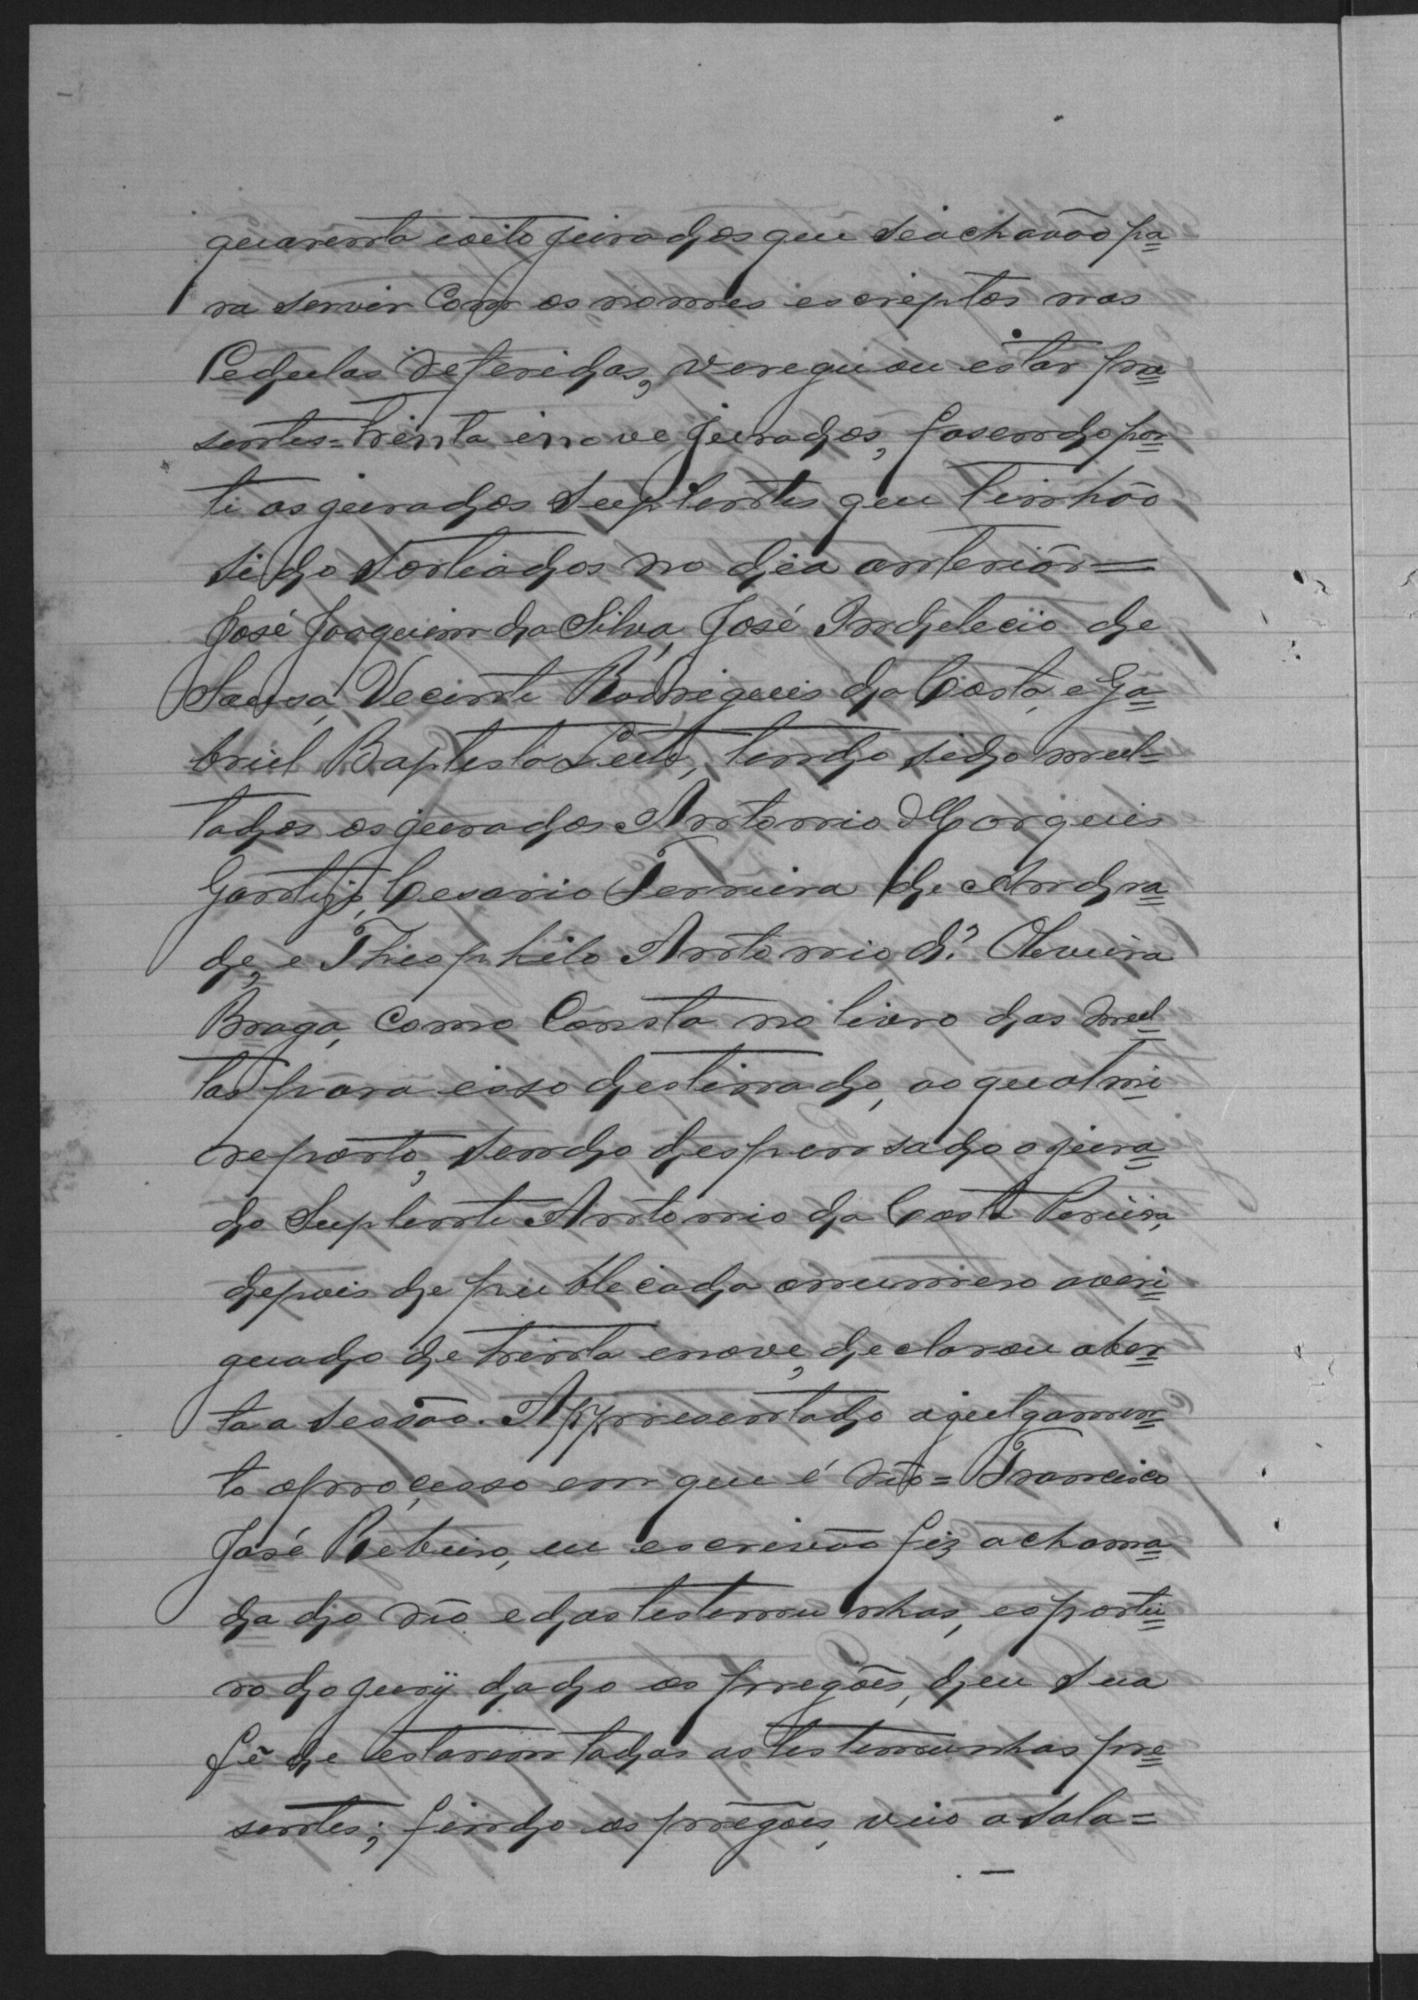 quarenta ioito jurados que seachavão pa=
ra servir com os nomes escriptos nas
Cedulas deferidas, verequou estar pre=
sentes=trenta inove jurados, fasendo por=
ti os jurados Suplentes que tinhão
sido Sorteados no dia anterior=
José Joaquim da Silva, José Indelecio de
Sausa, Vecente Rodrigueis da Costa, e Ga=
briel Baptesta Leite, tendo sido mul=
tados os jurados Antonio Morgueis
Gontijo, Cesario Ferreira de Andra=
de, e Theophilo Antonio d'Oleveira
Braga, como Consta no livro das mul=
tas para esso destinado, ao qual mi=
reporto, sendo despensado o jura=
do Suplente Antonio da Costa Pereira,
depois de publecada onumero averi=
guado de trenta enove, declarou aber=
ta a sessão. Appresentado ajulgamen=
to oprocesso em que é réo=Francisco
José Rebeiro, eu escrivão fiz achama=
da do réo edas testemunhas, eoportei=
ro do jury dado os pregões, deu sua
fé de estarem todas as testemunhas pre=
sentes; findo os pregões, veio asala=